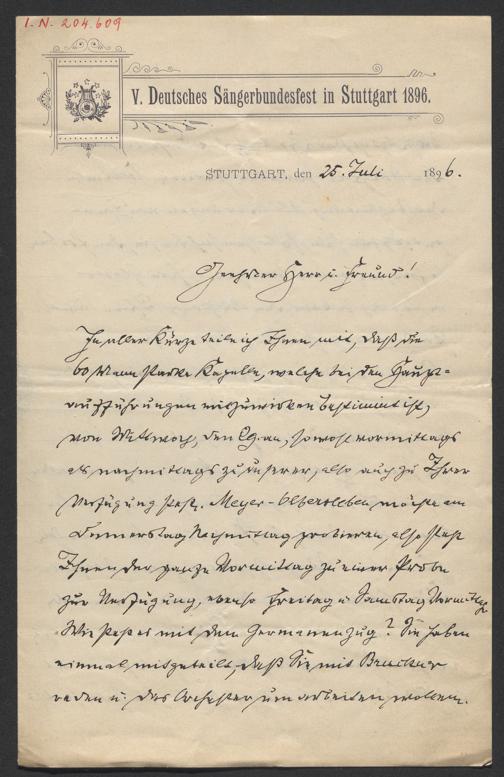 I.N. 204.609
V. Deutsches Sängerbundesfest in Stuttgart 1896.
STUTTGART, den 25. Juli 1896.
Geehrter Herr u. Freund!
In aller Kürze teile ich Ihnen mit, daß die
60 Mann starke Kapelle, welche bei den Haupt=
aufführungen mitzuwirken bestimmt ist,
von Mittwoch, den 29. an, sowohl vormittags
als nachmittags zu unserer, also auch zu Ihrer
Verfügung steht. Meyer-Olbersleben möchte am
Donnerstag Nachmittag probieren, also steht
Ihnen der ganze Vormittag zu einer Probe
zur Verfügung, ebenso Freitag u. Samstag Vormittag.
Wie steht es mit dem Germanenzug? Sie haben
einmal mitgeteilt, daß Sie mit Bruckner
reden u. das Orchester um arbeiten wollen.